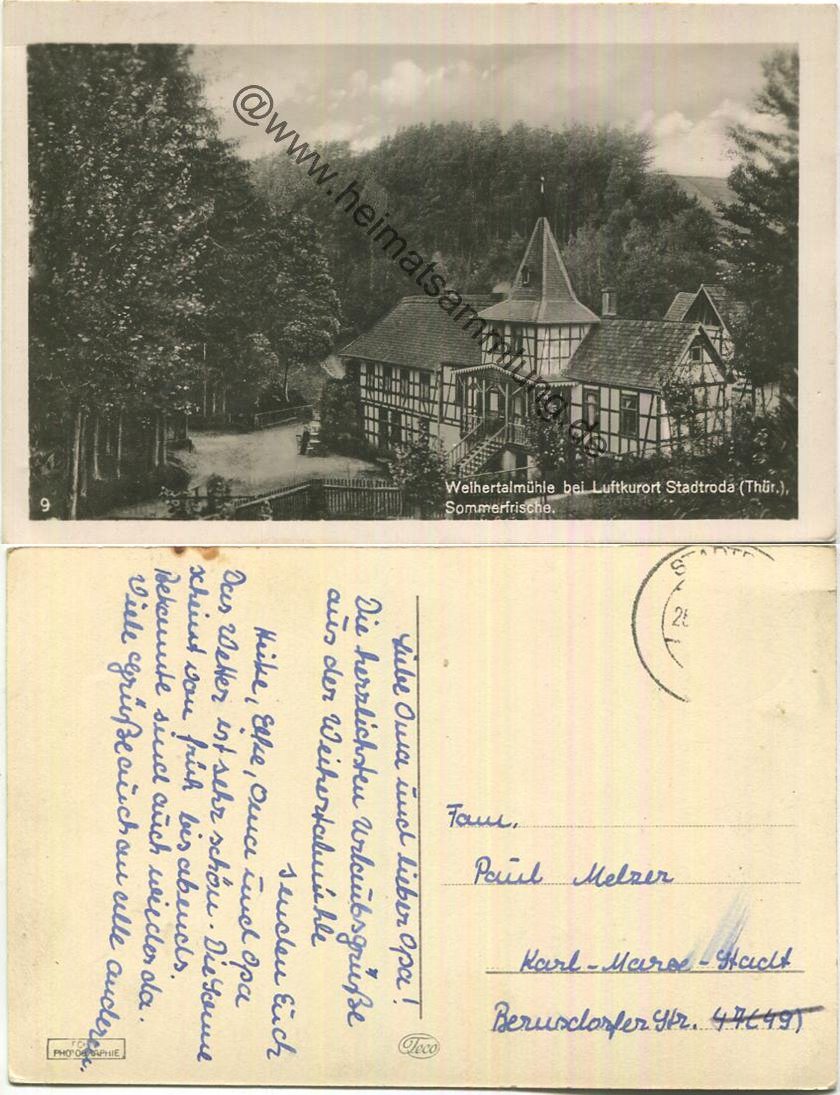 @www.heimatsammlung.de
Weihertalmühle bei Luftkurort Stadtroda (Thür.),
Sommerfrische.
9
Liebe Oma und lieber Opa!
Die herzlichsten Urlaubsgrüße
aus der Weihertalmühle
senden Euch
Heike, Elke, Oma und Opa
Das Wetter ist sehr schön. Die Sonne
scheint von früh bis abends.
Bekannte sind auch wieder da.
Viele Grüße auch an alle anderen.
STADTR
Fam.
Paul Melzer
Karl-Marx-Stadt
Bernsdorfer Str. 47(49)
PHOTOGRAPHIE
Teco